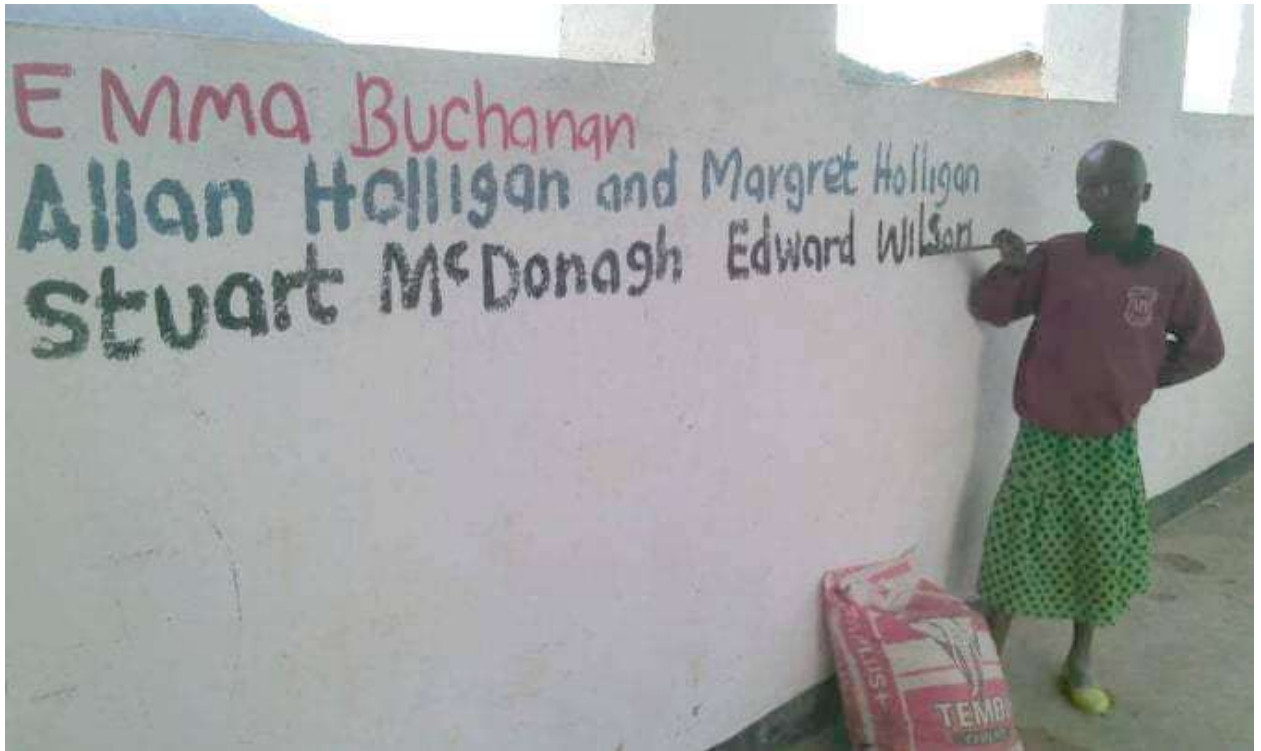 EMma Buchanan
Allan Holligan and Margret Holligan
Stuart McDonagh Edward Wilson
TEMB